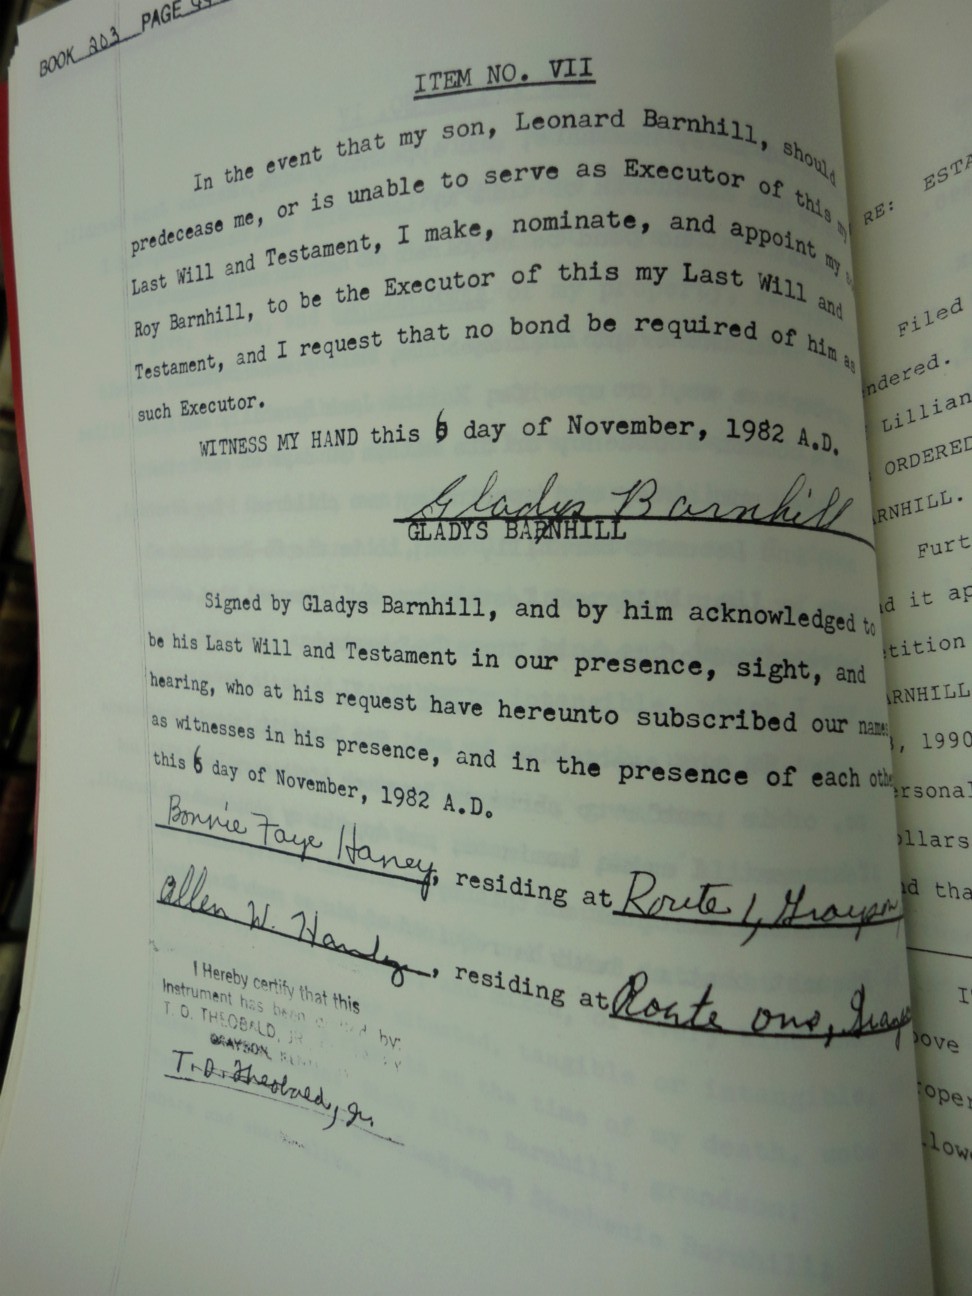 BOOK 203 PAGE
ITEM NO. VII
In the event that my son, Leonard Barnhill, should
predecease me, or is unable to serve as Executor of this my
Last Will and Testament, I make, nominate, and appoint my
Roy Barnhill, to be the Executor of this my Last Will and
Testament, and I request that no bond be required of him as
such Executor.
WITNESS MY HAND this 6 day of November, 1982 A.D.
Gladys Barnhill
GLADYS BARNHILL
Signed by Gladys Barnhill, and by him acknowledged to
be his Last Will and Testament in our presence, sight, and
hearing, who at his request have hereunto subscribed our names
as witnesses in his presence, and in the presence of each oth
this 6 day of November, 1982 A.D.
Bonnie Faye Haney, residing at Route 1, Grayson
Allen W. , residing at Route one,
I Hereby certify that this
Instrument has been by:
T. D. THEOBALD, JR.
GRAYSON,
T. D. Theobald, Jr.
RE: ESTA
Filed
ndered.
Lillian
ORDERED
ARNHILL.
Furt
d it ap
tition
ARNHILL
, 1990
ersonal
ollars
d tha
I
bove
roper
llow